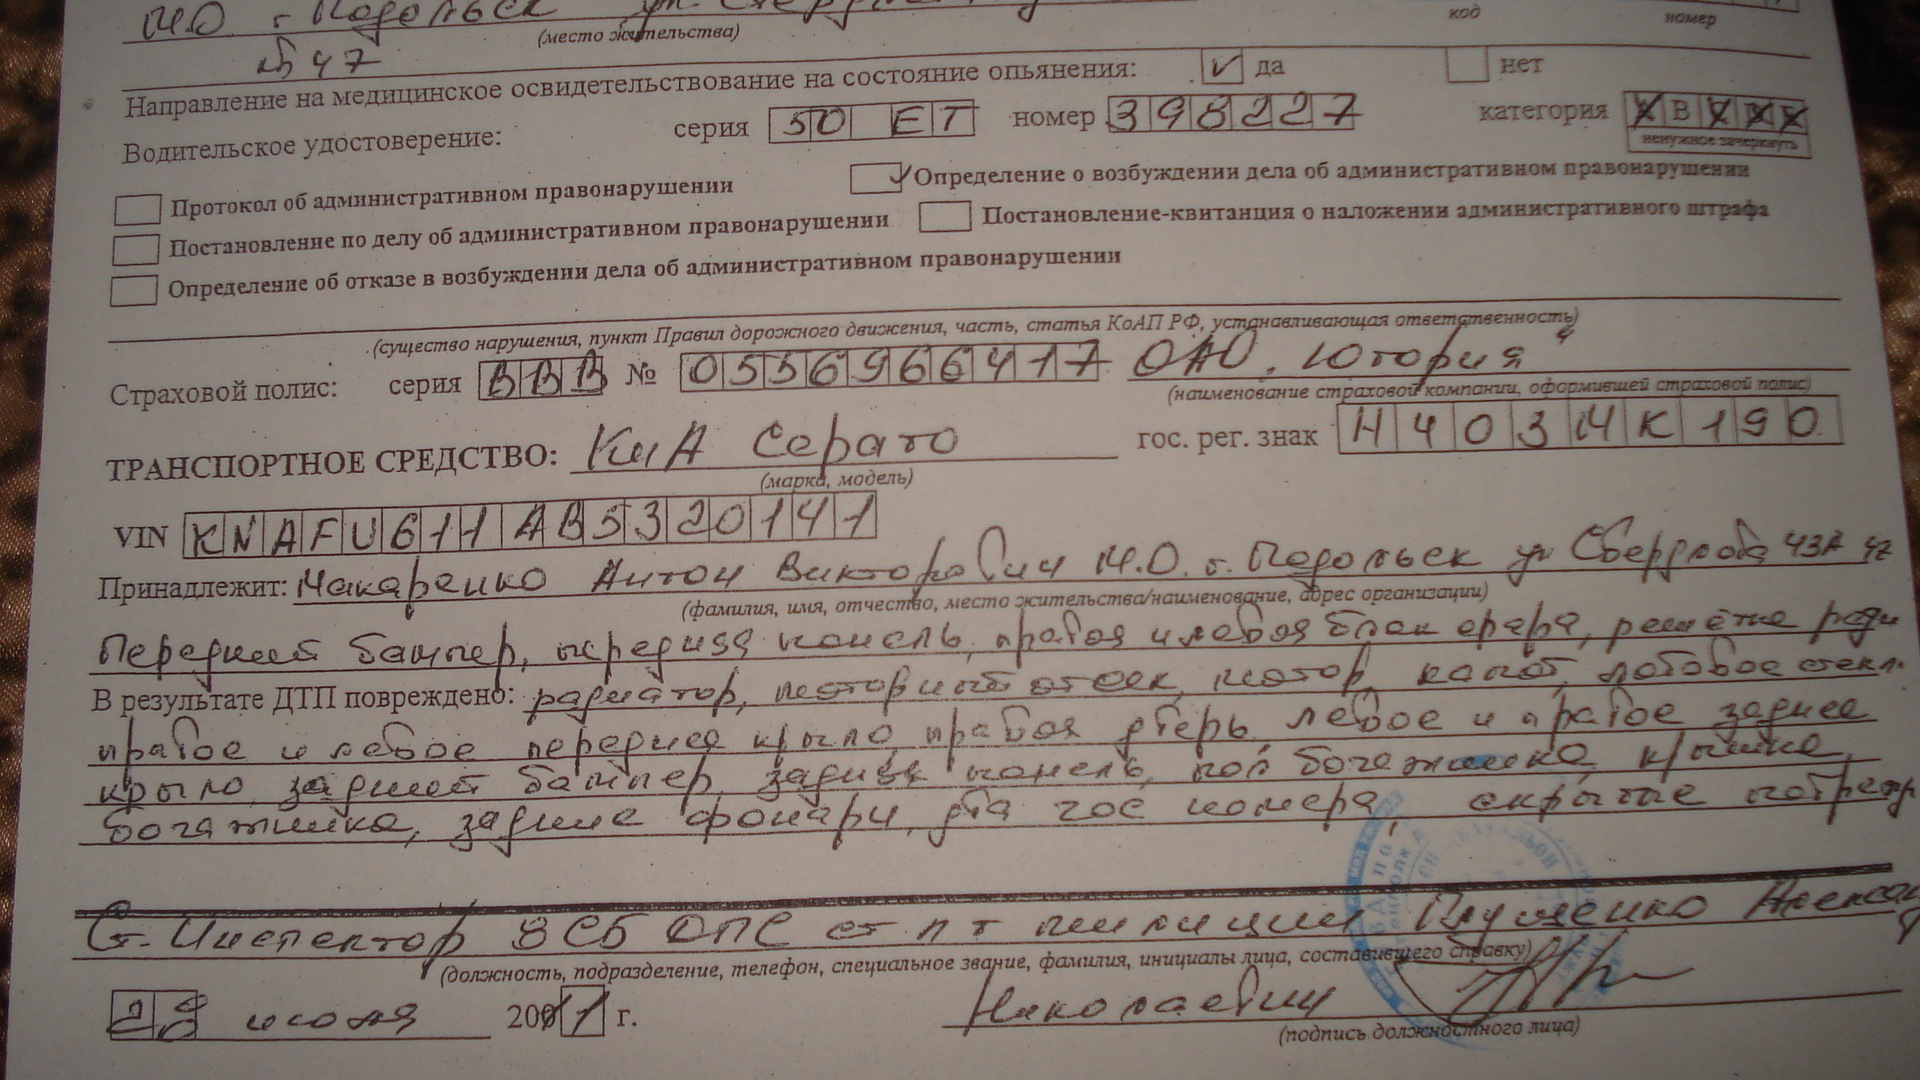 М.О. г. Подольск ул.
(место жительства)
код
номер
47
Направление на медицинское освидетельствование на состояние опьянения: да нет
Водительское удостоверение: серия 50 ЕТ номер 398227 категория В
ненужное зачеркнуть
Протокол об административном правонарушении
Определение о возбуждении дела об административном правонарушении
Постановление по делу об административном правонарушении
Постановление-квитанция о наложении административного штрафа
Определение об отказе в возбуждении дела об административном правонарушении
(существо нарушения, пункт Правил дорожного движения, часть, статья КоАП РФ, устанавливающая ответственность)
Страховой полис: серия ВВВ № 0556966417 ОАО „Югория“
(наименование страховой компании, оформившей страховой полис)
ТРАНСПОРТНОЕ СРЕДСТВО: КиА Серато гос. рег. знак Н403МК190
(марка, модель)
VIN KNAFU611AB5320141
Принадлежит: Макаренко Антон Викторович М.О. г. Подольск ул Свердлова 43А 47
(фамилия, имя, отчество, место жительства/наименование, адрес организации)
Передний бампер, передняя панель, правая и левая блок фара, решётка ради
В результате ДТП повреждено: радиатор, моторный отсек, мотор, капот, лобовое стекл.
правое и левое переднее крыло, правая дверь, левое и правое заднее
крыло, задний бампер, задняя панель, пол багажника, крышка
багажника, задние фонари, два гос номера, скрытые
Ст. Инспектор ДПС ст л-т милиции Глущенко
(должность, подразделение, телефон, специальное звание, фамилия, инициалы лица, составившего справку)
июня г. Николаевич
(подпись должностного лица)